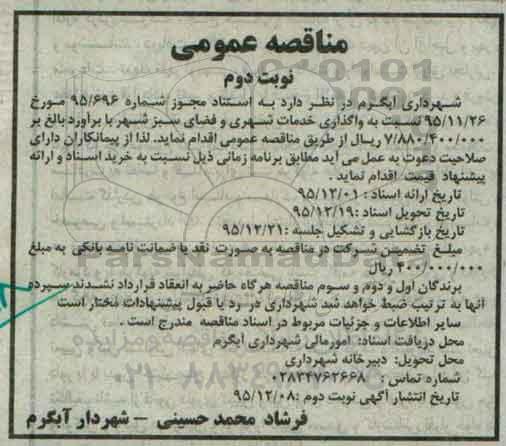 مناقصه عمومی
نوبت دوم
شهرداری آبگرم در نظر دارد به استناد مجوز شماره ۹۵/۶۹۶ مورخ
۹۵/۱۱/۲۶ نسبت به واگذاری خدمات شهری و فضای سبز شهر با برآورد بالغ بر
۷/۸۸۰/۴۰۰/۰۰۰ ریال از طریق مناقصه عمومی اقدام نماید. لذا از پیمانکاران دارای
صلاحیت دعوت به عمل می آید مطابق برنامه زمانی ذیل نسبت به خرید اسناد و ارائه
پیشنهاد قیمت اقدام نماید .
تاریخ ارائه اسناد : ۹۵/۱۲/۰۱
تاریخ تحویل اسناد :۹۵/۱۲/۱۹
تاریخ بازگشایی و تشکیل جلسه :۹۵/۱۲/۲۱
مبلغ تضمین شرکت در مناقصه به صورت نقد یا ضمانت نامه بانکی به مبلغ
۴۰۰/۰۰۰/۰۰۰ ریال
برندگان اول و دوم و سوم مناقصه هرگاه حاضر به انعقاد قرارداد نشدند سپرده
آنها به ترتیب ضبط خواهد شد شهرداری در رد یا قبول پیشنهادات مختار است
سایر اطلاعات و جزئیات مربوط در اسناد مناقصه مندرج است .
محل دریافت اسناد: امورمالی شهرداری آبگرم
محل تحویل: دبیرخانه شهرداری
شماره تماس : ۰۲۸۳۴۷۶۲۶۶۸
تاریخ انتشار آگهی نوبت دوم :۹۵/۱۲/۰۸
فرشاد محمد حسینی – شهردار آبگرم